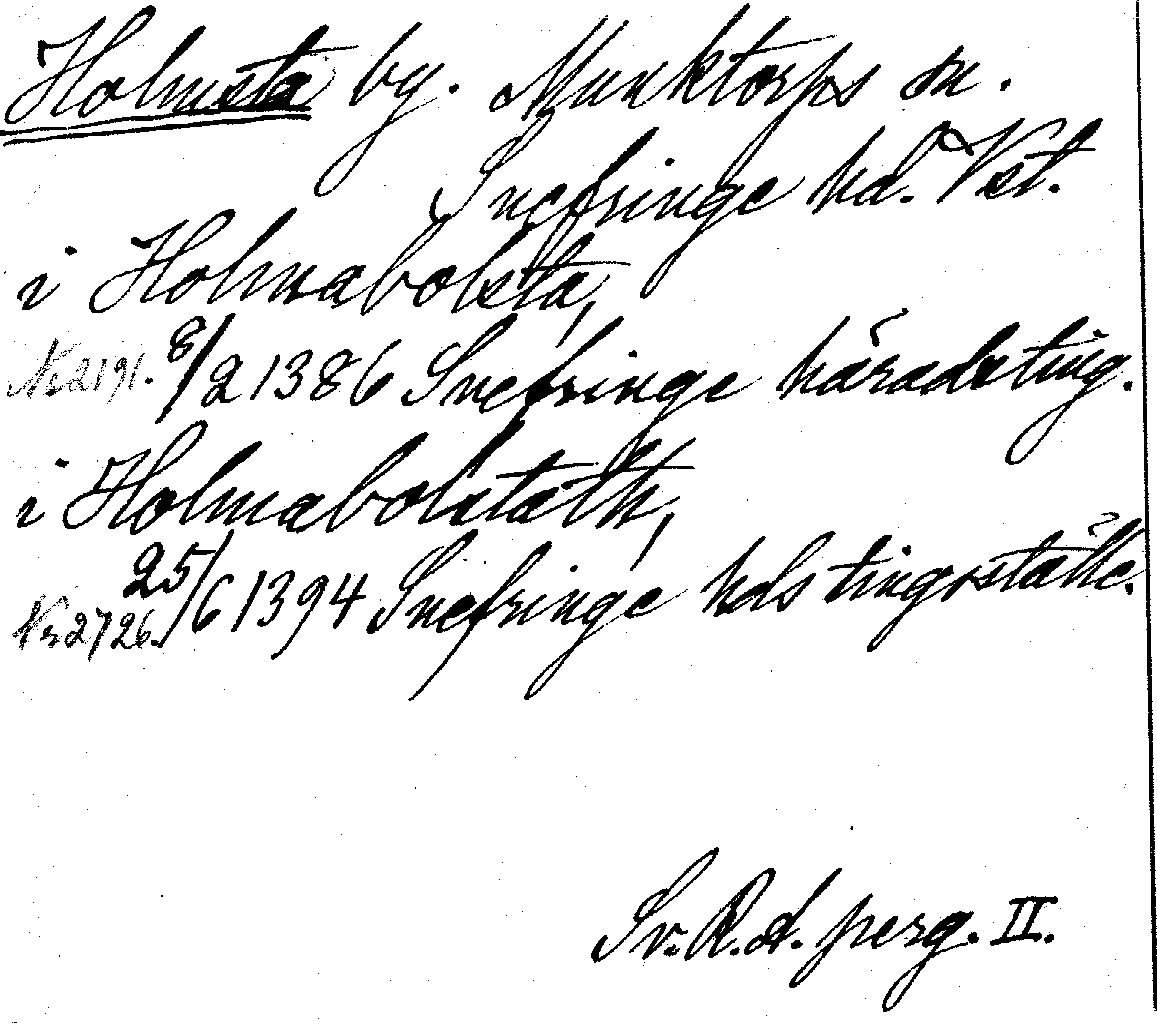 Holmsta by. Munktorps sn.
Snefringe hd. Vst.
i Holmabolsta,
Nr 2191. 8/2 1386 Snefringe häradsting.
i Holmabolstath,
Nr 2726. 25/6 1394 Snefringe hds tingsställe.
Sv. R. A. perg. II.